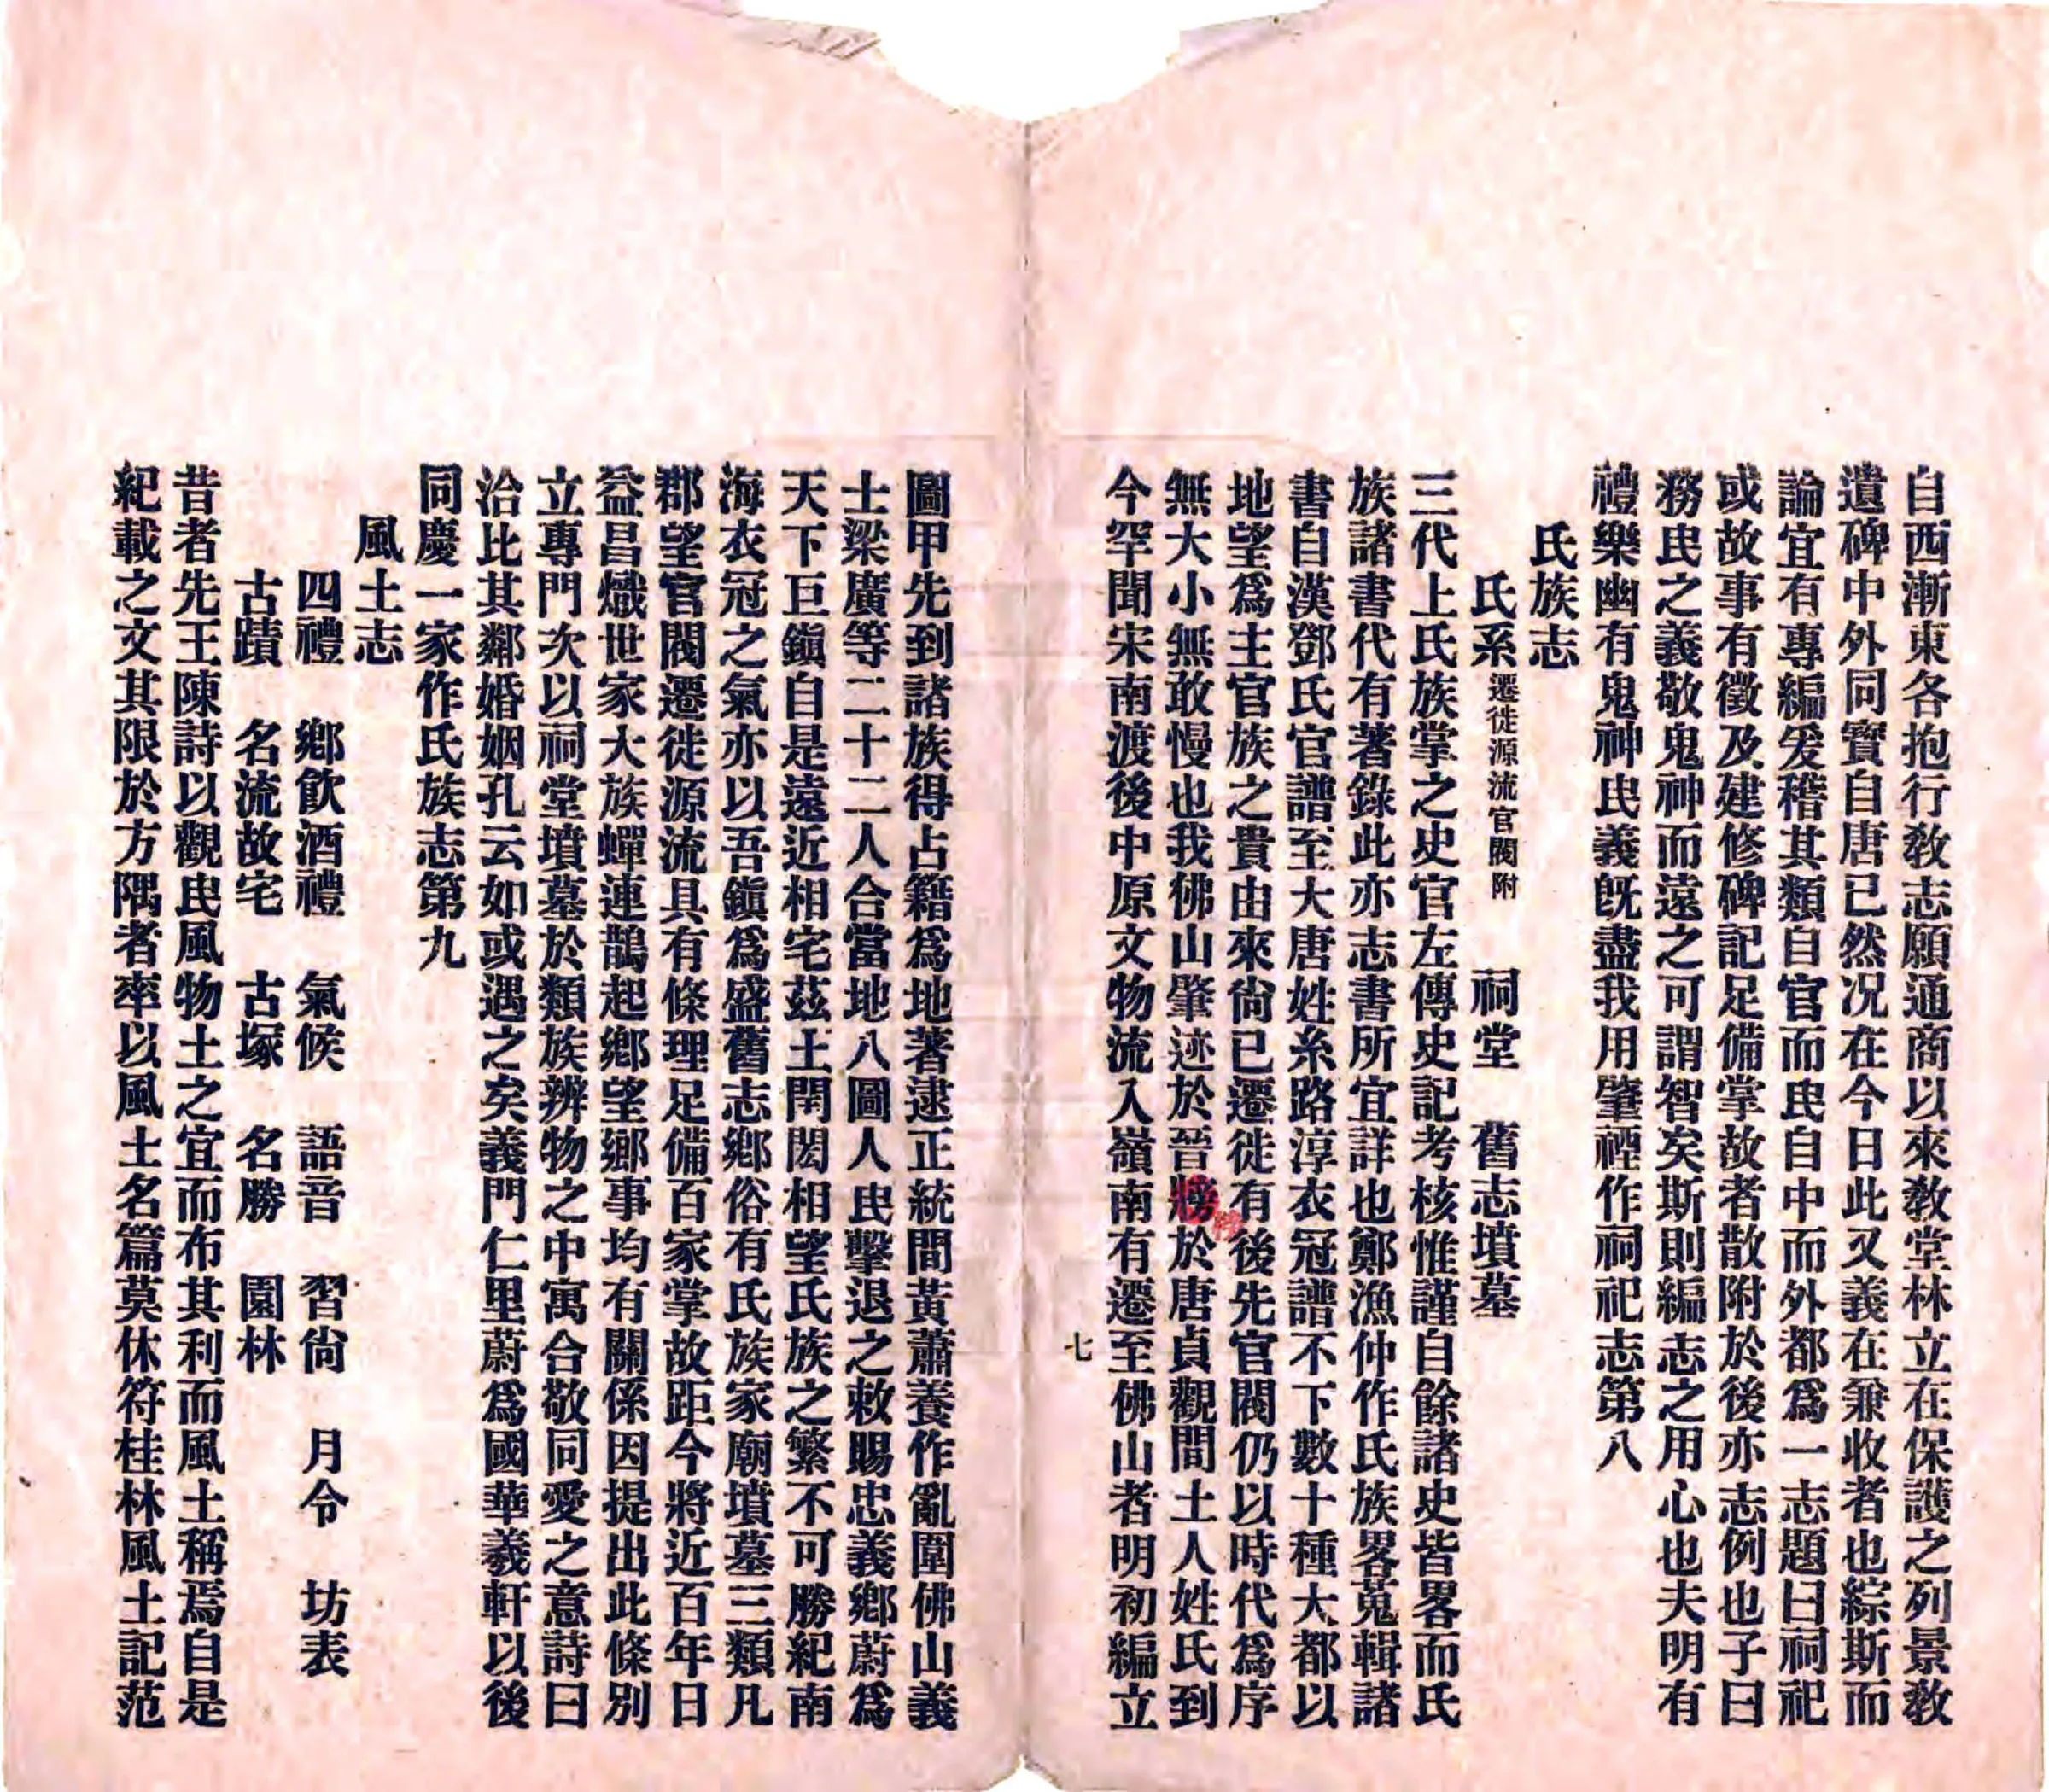 自西漸東各抱行教志願通商以來教堂林立在保護之列景教
遺碑中外同寶自唐已然况在今日此又義在兼收者也綜斯而
論宜有專編爰稽其類自官而民自中而外都爲一志題曰祠祀
或故事有徵及建修碑記足備掌故者散附於後亦志例也子曰
務民之義敬鬼神而遠之可謂智矣斯則編志之用心也夫明有
禮樂幽有鬼神民義旣盡我用肇禋作祠祀志第八
氏族志
氏系遷徙源流官閥附 祠堂 舊志墳墓
三代上氏族掌之史官左傳史記考核惟謹自餘諸史皆畧而氏
族諸書代有著錄此亦志書所宜詳也鄭漁仲作氏族畧蒐輯諸
書自漢鄧氏官譜至大唐姓系路淳衣冠譜不下數十種大都以
地望爲主官族之貴由來尙已遷徙有後先官閥仍以時代爲序
無大小無敢慢也我佛山肇迹於晉 於唐貞觀間土人姓氏到
今罕聞宋南渡後中原文物流入嶺南有遷至佛山者明初編立
七
圖甲先到諸族得占籍爲地著逮正統間黃蕭養作亂圍佛山義
士梁廣等二十二人合當地八圖人民擊退之敕賜忠義鄉蔚爲
天下巨鎭自是遠近相宅茲土閈閎相望氏族之繁不可勝紀南
海衣冠之氣亦以吾鎭爲盛舊志鄉俗有氏族家廟墳墓三類凡
郡望官閥遷徙源流具有條理足備百家掌故距今將近百年日
益昌熾世家大族蟬連鵲起鄉望鄉事均有關係因提出此條別
立專門次以祠堂墳墓於類族辨物之中寓合敬同愛之意詩曰
洽比其鄰婚姻孔云如或遇之矣義門仁里蔚爲國華羲軒以後
同慶一家作氏族志第九
風土志
四禮 鄉飮酒禮 氣候 語音 習尙 月令 坊表
古蹟 名流故宅 古塚 名勝 園林
昔者先王陳詩以觀民風物土之宜而布其利而風土稱焉自是
紀載之文其限於方隅者率以風土名篇莫休符桂林風土記范